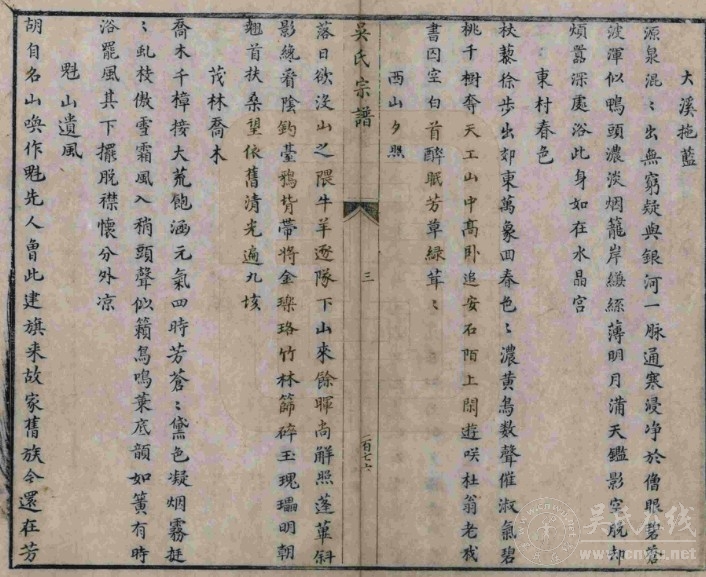 大溪拖藍
源泉混〻出無窮疑與銀河一脉通寒浸净於僧眼碧倉
波渾似鴨頭濃淡烟籠岸綠絲薄明月滿天鑑影空脫却
煩囂深處浴此身如在水晶宮
東村春色
杖藜徐步出郊東萬象回春色〻濃黄鳥數聲催淑氣碧
桃千樹奪天工山中高卧追安石陌上閑遊咲杜翁老我
書囚空白首醉眠芳草緑茸〻
西山夕照
吳氏宗譜
三
一百七六
落日欲沒山之隈牛羊逐隊下山來餘暉尚觧照蓬蓽斜
影緣看陰釣臺鴉背帶將金璨珞竹林篩碎玉瑰𤩹明朝
翹首扶桑望依舊清光遍九垓
茂林喬木
喬木千樟接大荒飽涵元氣四時芳蒼〻黛色凝烟霧挺
〻虬枝傲雪霜風入稍頭聲似籟鳥鳴葉底韻如簧有時
浴罷風其下擺脫襟懷分外凉
魁山遺風
胡自名山喚作魁先人曽此建旗来故家舊族今還在芳
吳氏在线
www.cnwu.net